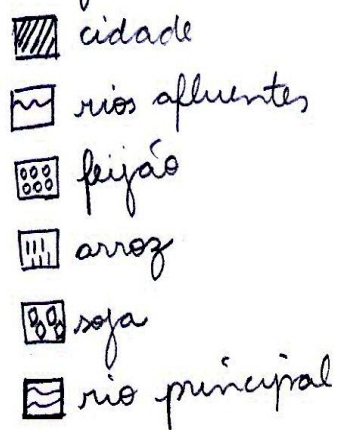 cidade
rios afluentes
feijão
arroz
soja
rio principal